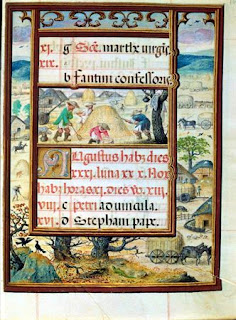 xj. g Scē. marthe virgīs
xix.
b fantini confessoris
Agustus habz dies
xxxj. luna xx x. Nox
habz horas xj. dies vo. xiij.
viij. c petri ad uincula.
xvj. d Stephani pape.